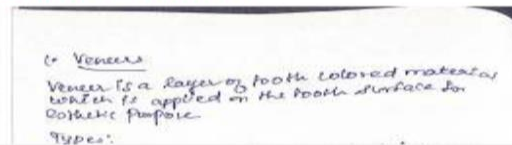 (* Veneers
Veneer is a layer of tooth colored material
which is applied on the tooth surface for
esthetic purpose.
Types: